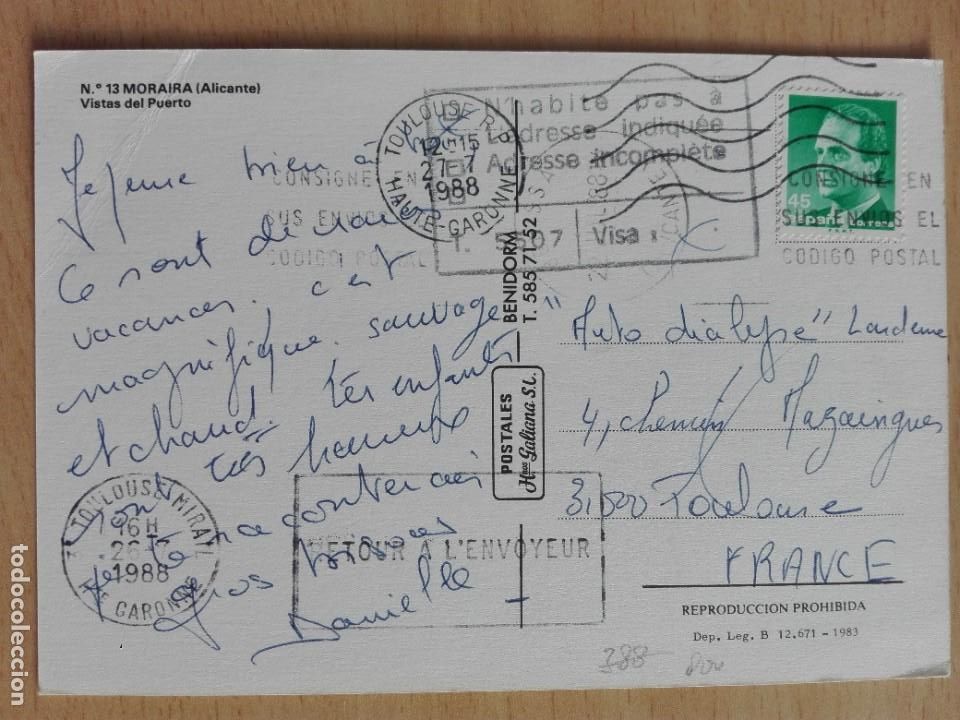 N.º 13 MORAIRA (Alicante)
Vistas del Puerto
Je pense bien à toi
Ce sont de
vacances, c'est
magnifique, sauvage
et chaud. Les enfants
sont très heureux
Je te
Gros bisous
Danielle
TOULOUSE R.P.
12H15
27-7
1988
HAUTE-GARONNE
N'habite pas à
L'adresse indiquée
Adresse incomplète
T. 5607 Visa :
CONSIGNE EN
SUS ENVIOS EL
CODIGO POSTAL
CONSIGNE EN
SUS ENVIOS EL
CODIGO POSTAL
45
España correos
BENIDORM
T. 585 71 52
POSTALES
Hnos Galiana S.L.
"Auto dialyse"
4, Chemin Mazaingues
31300 Toulouse
FRANCE
TOULOUSE MIRAIL
16H
26
1988
Hte GARONNE
RETOUR A L'ENVOYEUR
REPRODUCCION PROHIBIDA
Dep. Leg. B 12.671 - 1983
388
todocoleccion